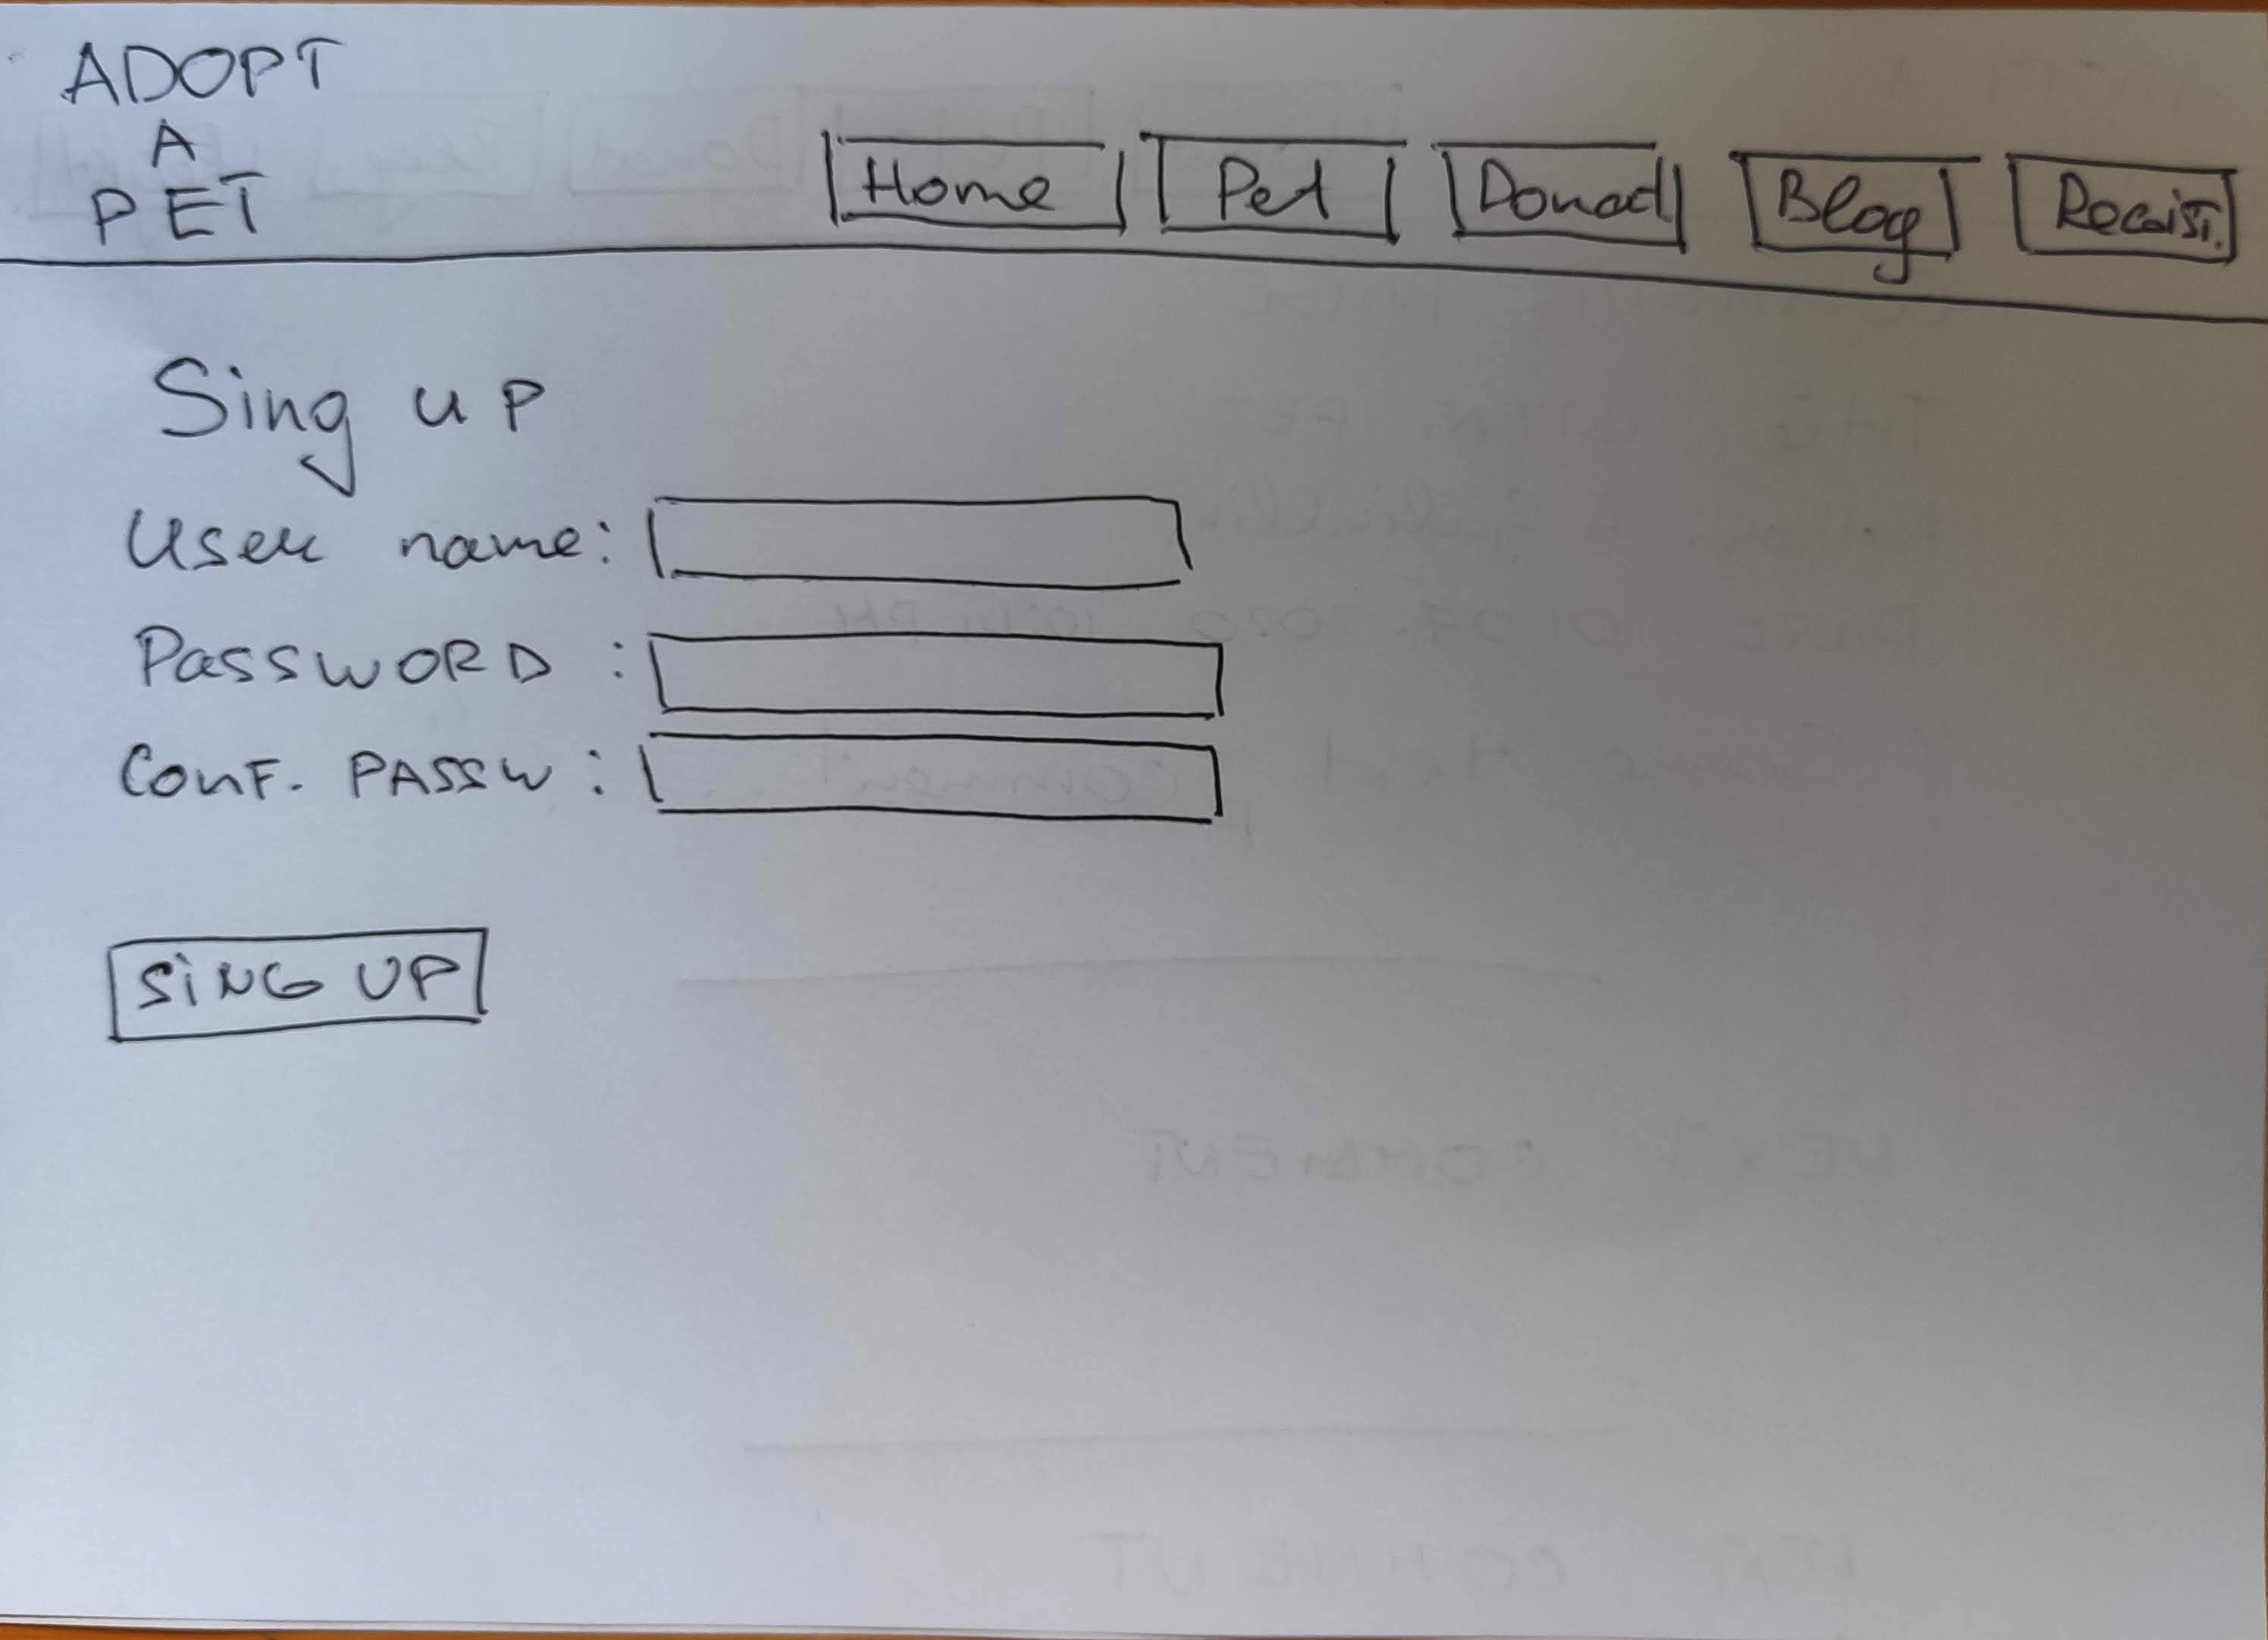 ADOPT
A
PET
Home Pet Donad Blog
Sing up
User name:
PassWORD :
Conf. PASSW :
SiNG UP